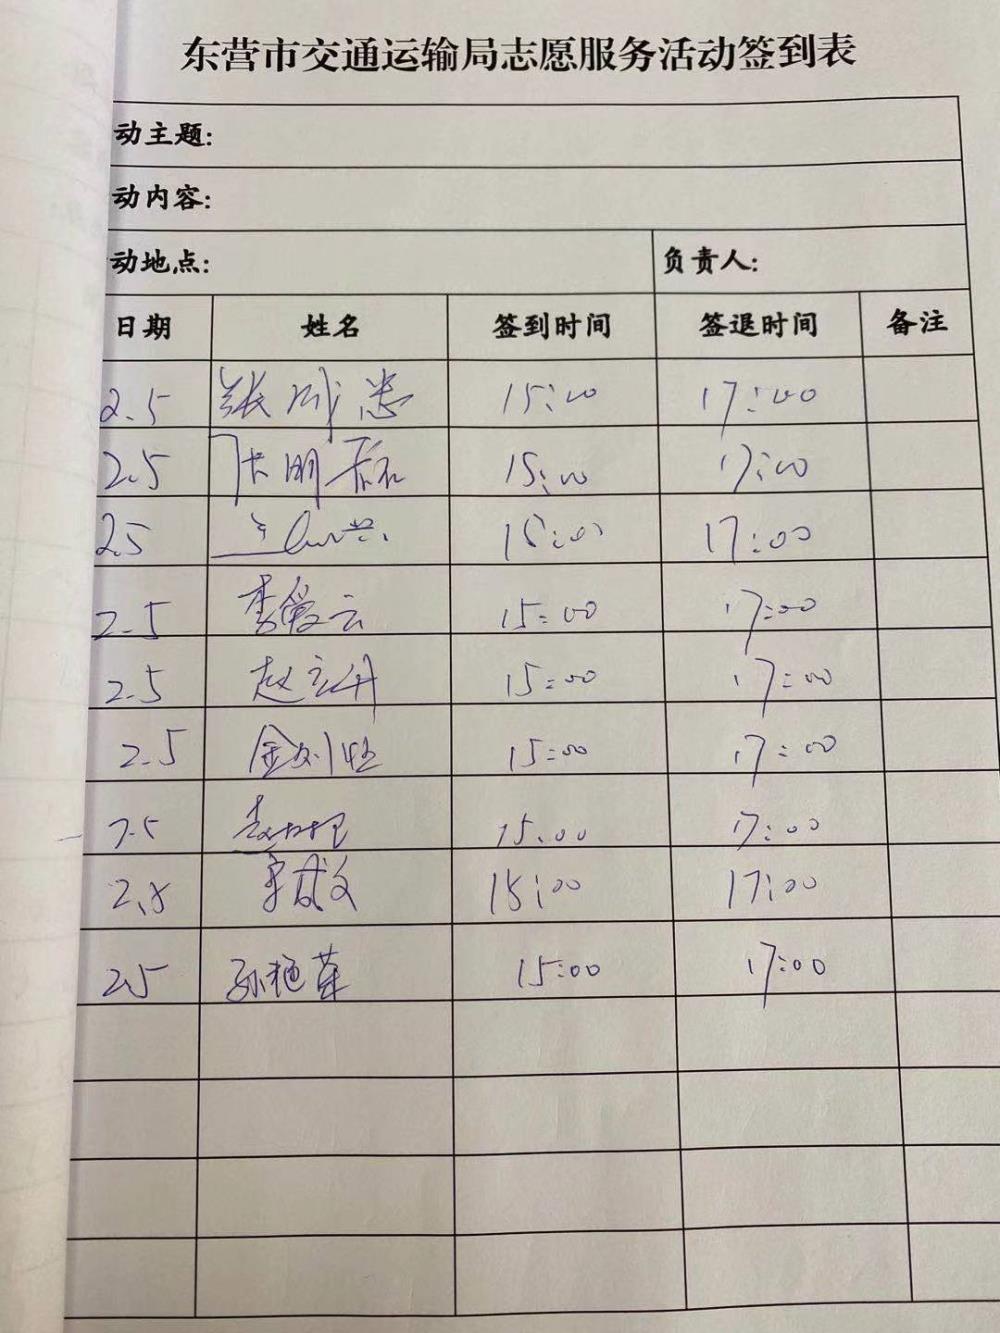 东营市交通运输局志愿服务活动签到表
动主题:
动内容:
动地点: 负责人:
日期 姓名 签到时间 签退时间 备注
2.5 张 15:00 17:00
2.5 张明 15:00 17:00
2.5 15:00 17:00
2.5 李爱云 15:00 17:00
2.5 赵立升 15:00 17:00
2.5 金 15:00 17:00
2.5 15.00 17:00
2.5 文 15:00 17:00
2.5 孙艳萍 15:00 17:00